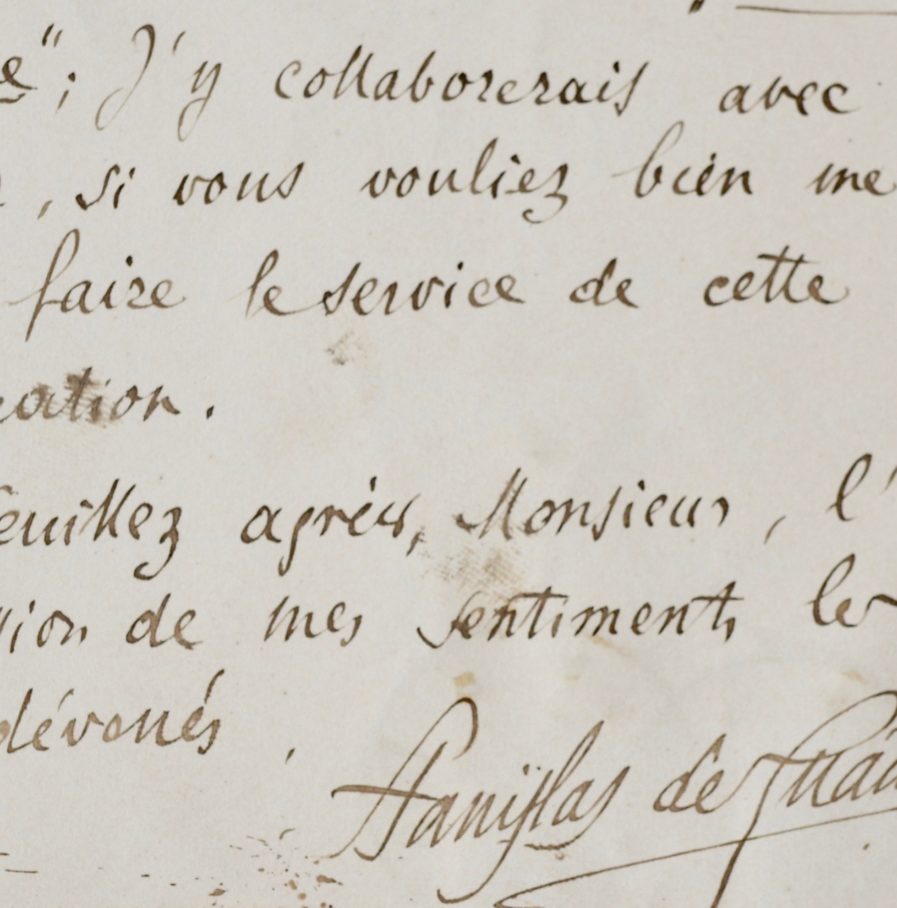 e"; J'y collaborerais avec
, si vous vouliez bien me
faire le service de cette
cation.
Veuillez agréer, Monsieur, l'
sion de mes sentiments les
dévoués.
Stanislas de Guai